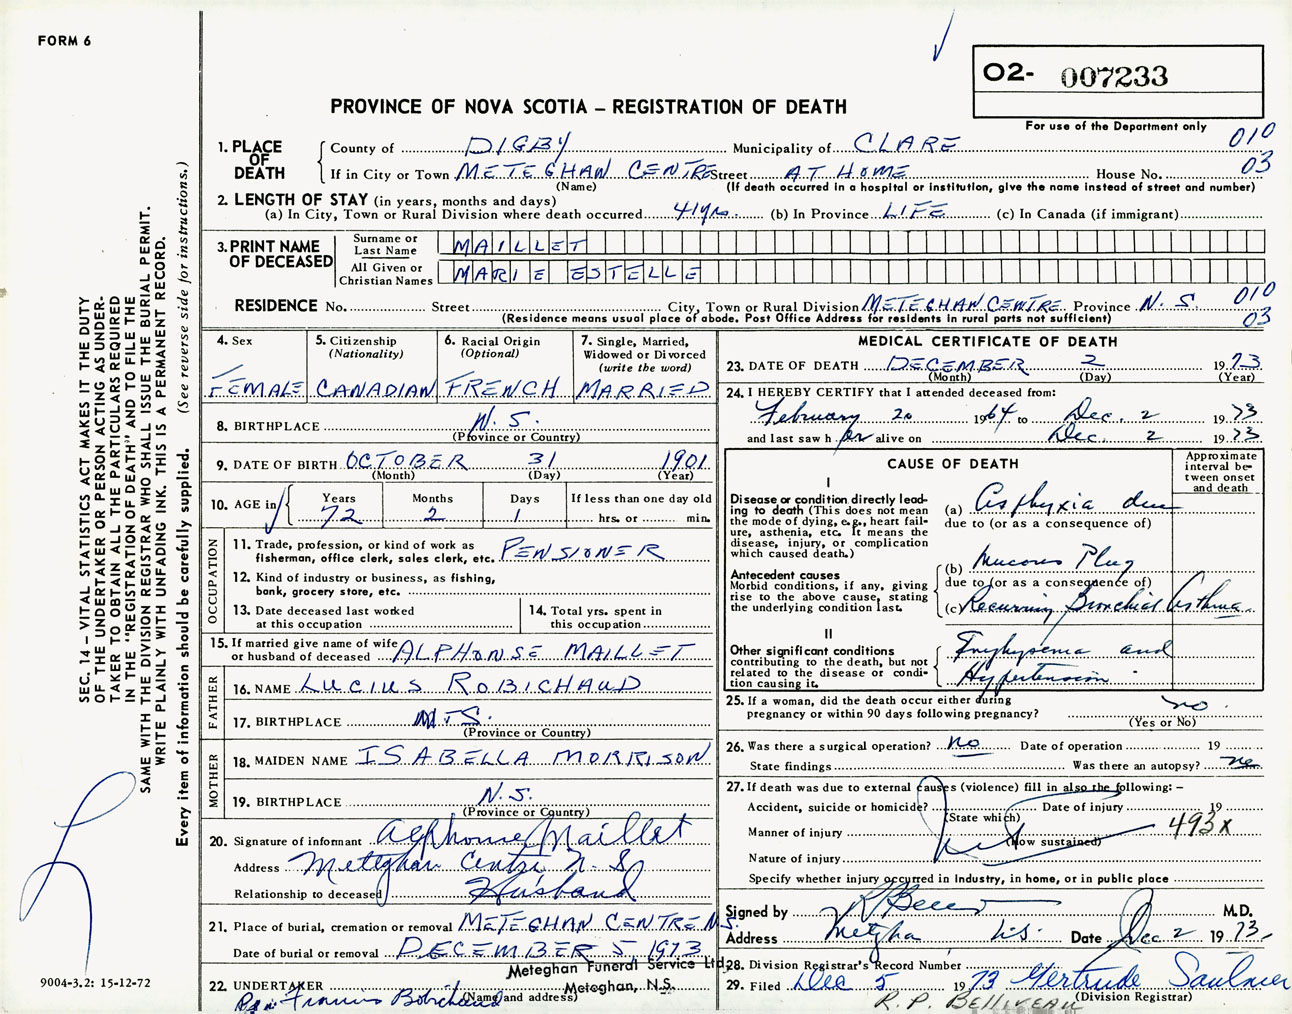 FORM 6
O2- 007233
PROVINCE OF NOVA SCOTIA – REGISTRATION OF DEATH
For use of the Department only
1. PLACE OF DEATH
County of DIGBY Municipality of CLARE 010
If in City or Town METEGHAN CENTRE Street AT HOME House No. 03
(Name) (If death occurred in a hospital or institution, give the name instead of street and number)
2. LENGTH OF STAY (in years, months and days)
(a) In City, Town or Rural Division where death occurred 41 yrs. (b) In Province LIFE (c) In Canada (if immigrant)
3. PRINT NAME OF DECEASED
Surname or Last Name MAILLET
All Given or Christian Names MARIE ESTELLE
RESIDENCE No. Street City, Town or Rural Division METEGHAN CENTRE Province N. S. 010
(Residence means usual place of abode. Post Office Address for residents in rural parts not sufficient) 03
4. Sex
FEMALE
5. Citizenship
(Nationality)
CANADIAN
6. Racial Origin
(Optional)
FRENCH
7. Single, Married,
Widowed or Divorced
(write the word)
MARRIED
8. BIRTHPLACE N. S.
(Province or Country)
9. DATE OF BIRTH OCTOBER 31 1901
(Month) (Day) (Year)
10. AGE in
Years Months Days If less than one day old
72 2 1 hrs. or min.
OCCUPATION
11. Trade, profession, or kind of work as
fisherman, office clerk, sales clerk, etc. PENSIONER
12. Kind of industry or business, as fishing,
bank, grocery store, etc.
13. Date deceased last worked
at this occupation
14. Total yrs. spent in
this occupation
15. If married give name of wife
or husband of deceased ALPHONSE MAILLET
FATHER
16. NAME LUCIUS ROBICHAUD
17. BIRTHPLACE N.S.
(Province or Country)
MOTHER
18. MAIDEN NAME ISABELLA MORRISON
19. BIRTHPLACE N.S.
(Province or Country)
20. Signature of informant Alphonse Maillet
Address Meteghan Centre N. S.
Relationship to deceased Husband
21. Place of burial, cremation or removal METEGHAN CENTRE N.S.
Date of burial or removal DECEMBER 5 1973
Meteghan Funeral Service Ltd.
22. UNDERTAKER Meteghan, N.S.
(Name and address)
Per Francis Robichaud
MEDICAL CERTIFICATE OF DEATH
23. DATE OF DEATH DECEMBER 2 1973
(Month) (Day) (Year)
24. I HEREBY CERTIFY that I attended deceased from:
February 20 1964 to Dec. 2 1973
and last saw her alive on Dec. 2 1973
CAUSE OF DEATH
Approximate
interval be-
tween onset
and death
I
Disease or condition directly lead-
ing to death (This does not mean
the mode of dying, e.g., heart fail-
ure, asthenia, etc. It means the
disease, injury, or complication
which caused death.)
(a) Asphyxia due
due to (or as a consequence of)
Antecedent causes
Morbid conditions, if any, giving
rise to the above cause, stating
the underlying condition last.
(b) Mucous Plug
due to (or as a consequence of)
(c) Recurring Bronchial Asthma
II
Other significant conditions
contributing to the death, but not
related to the disease or condi-
tion causing it.
Emphysema and
Hypertension
25. If a woman, did the death occur either during
pregnancy or within 90 days following pregnancy? no
(Yes or No)
26. Was there a surgical operation? no Date of operation 19
State findings Was there an autopsy? no
27. If death was due to external causes (violence) fill in also the following: –
Accident, suicide or homicide? Date of injury 19
(State which)
Manner of injury 493x
(How sustained)
Nature of injury
Specify whether injury occurred in industry, in home, or in public place
Signed by M.D.
Address Meteghan N.S. Date Dec 2 1973
28. Division Registrar's Record Number
29. Filed Dec 5 1973 Gertrude Saulnier
(Division Registrar)
R. P. BELLIVEAU
SEC. 14 – VITAL STATISTICS ACT MAKES IT THE DUTY
OF THE UNDERTAKER OR PERSON ACTING AS UNDER-
TAKER TO OBTAIN ALL THE PARTICULARS REQUIRED
IN THE "REGISTRATION OF DEATH" AND TO FILE THE
SAME WITH THE DIVISION REGISTRAR WHO SHALL ISSUE THE BURIAL PERMIT.
WRITE PLAINLY WITH UNFADING INK. THIS IS A PERMANENT RECORD.
Every item of information should be carefully supplied. (See reverse side for instructions.)
9004-3.2: 15-12-72